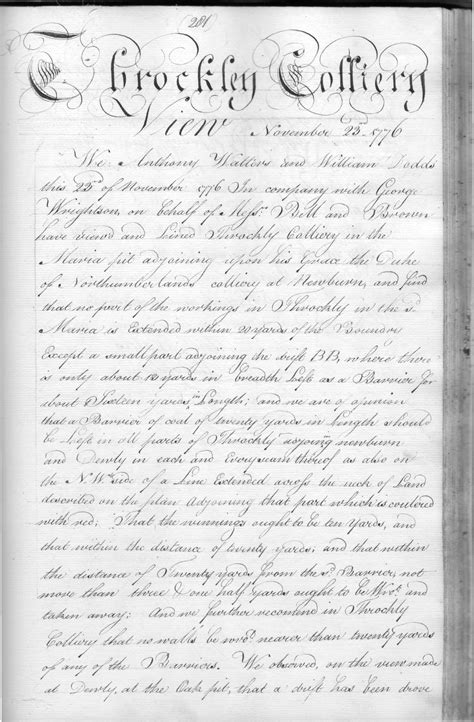 201
Throckley Colliery
View November 23rd 1776
We Anthony Watters and William Dodds
this 23rd of November 1776 In company with George
Wrightson, on behalf of Messrs. Bell and Brown
have viewd and Lined Throckly Colliery in the
Maria pit adjoining upon his Grace the Duke
of Northumberlands colliery at Newburn, and find
that no part of the workings in Throckly in the sd.
Maria is Extended within 20 yards of the Boundry
Except a small part adjoining the drift BB, where there
is only about 10 yards in breadth Left as a Barrier for
about Sixteen yards in Length; and we are of opinion
that a Barrier of coal of twenty yards in Length should
be Left in all parts of Throckly adjoining newburn
and Dewly in each and Every seam thereof as also on
the N.W. side of a Line Extended across the neck of Land
described on the plan adjoining that part which is coulored
with red; That the winnings ought to be ten yards, and
that within the distance of twenty yards; and that within
the distance of Twenty yards from the sd. Barrier, not
more than three & one half yards ought to be Wro't. and
taken away: And we further recomend in Throckly
Colliery that no walls be wro't. nearer than twenty yards
of any of the Barriers. We observed, on the view made
at Dewly, at the Oak pit, that a drift has been drove